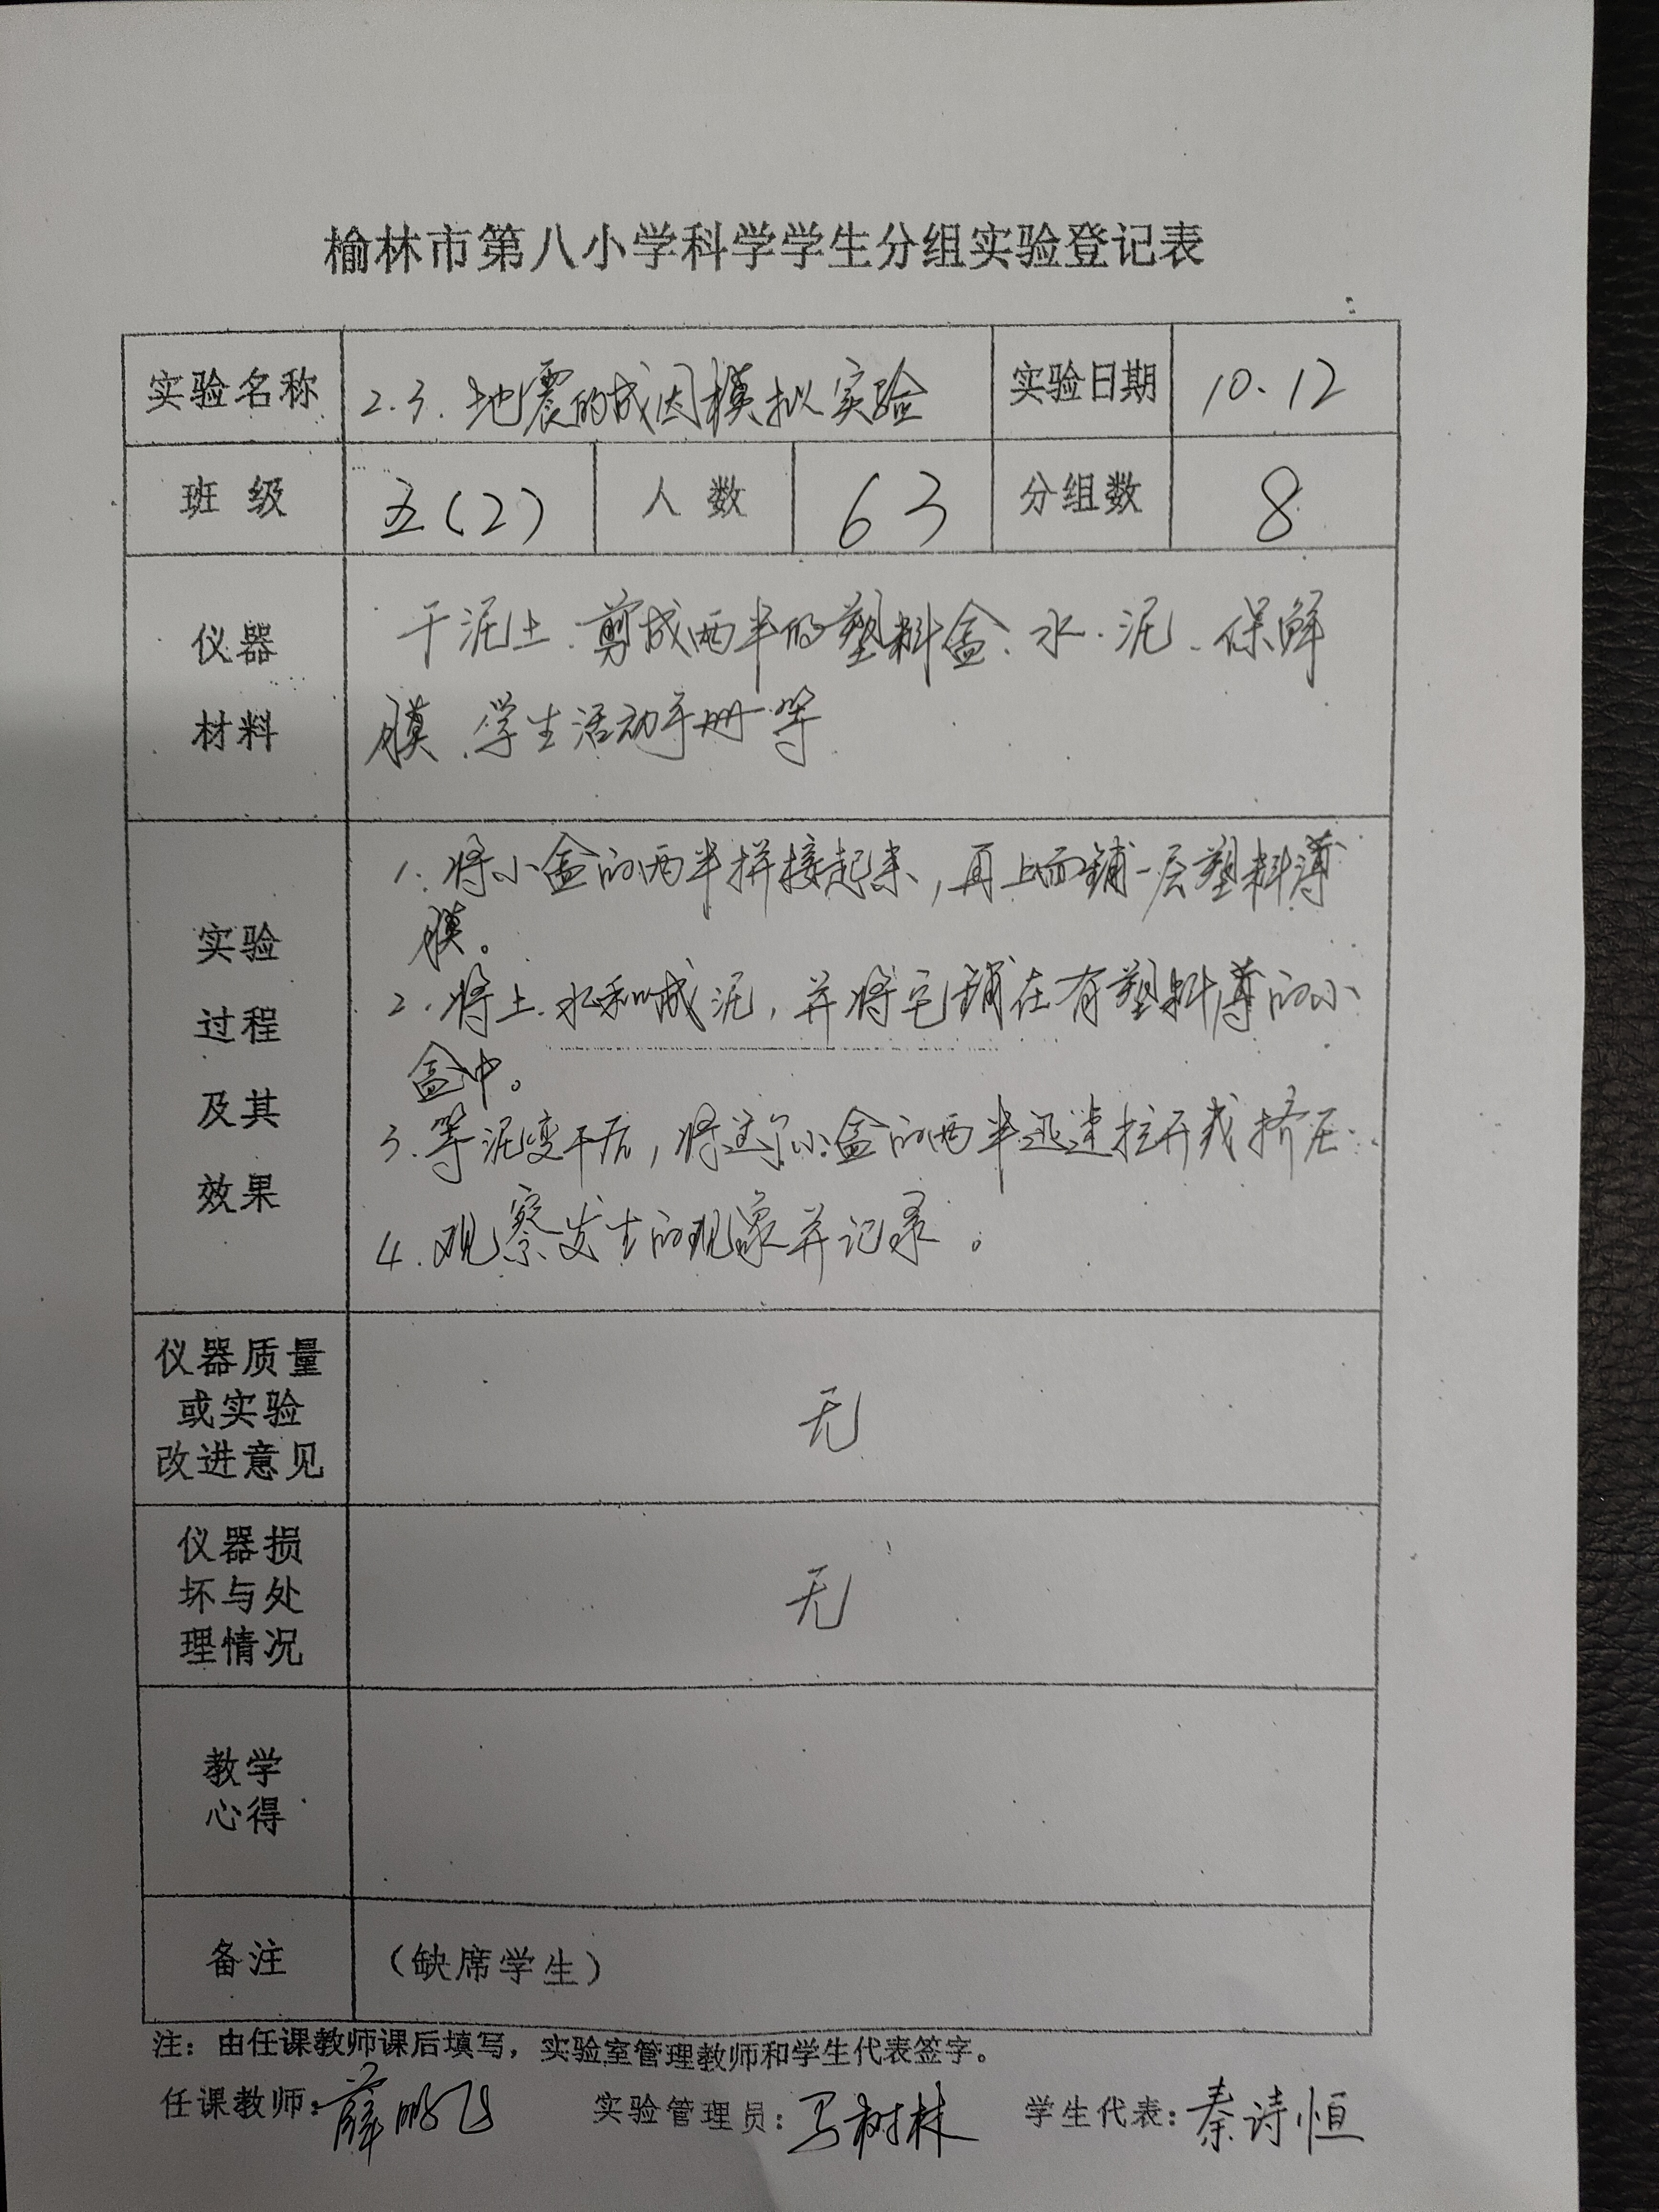 榆林市第八小学科学学生分组实验登记表
实验名称 2.3. 地震的成因模拟实验 实验日期 10.12
班 级 五(2) 人 数 63 分组数 8
仪器 干泥土、剪成两半的塑料盒、水、泥、保鲜
材料 膜、学生活动手册等
1. 将小盒的两半拼接起来,再上面铺一层塑料薄
实验 膜。
过程 2. 将土、水和成泥,并将它铺在有塑料薄的小
及其 盒中。
效果 3. 等泥变干后,将这个小盒的两半迅速拉开或挤压.
4. 观察发生的现象并记录。
仪器质量
或实验 无
改进意见
仪器损
坏与处 无
理情况
教学
心得
备注 (缺席学生)
注:由任课教师课后填写,实验室管理教师和学生代表签字。
任课教师:薛鹏飞 实验管理员:马树林 学生代表:秦诗恒